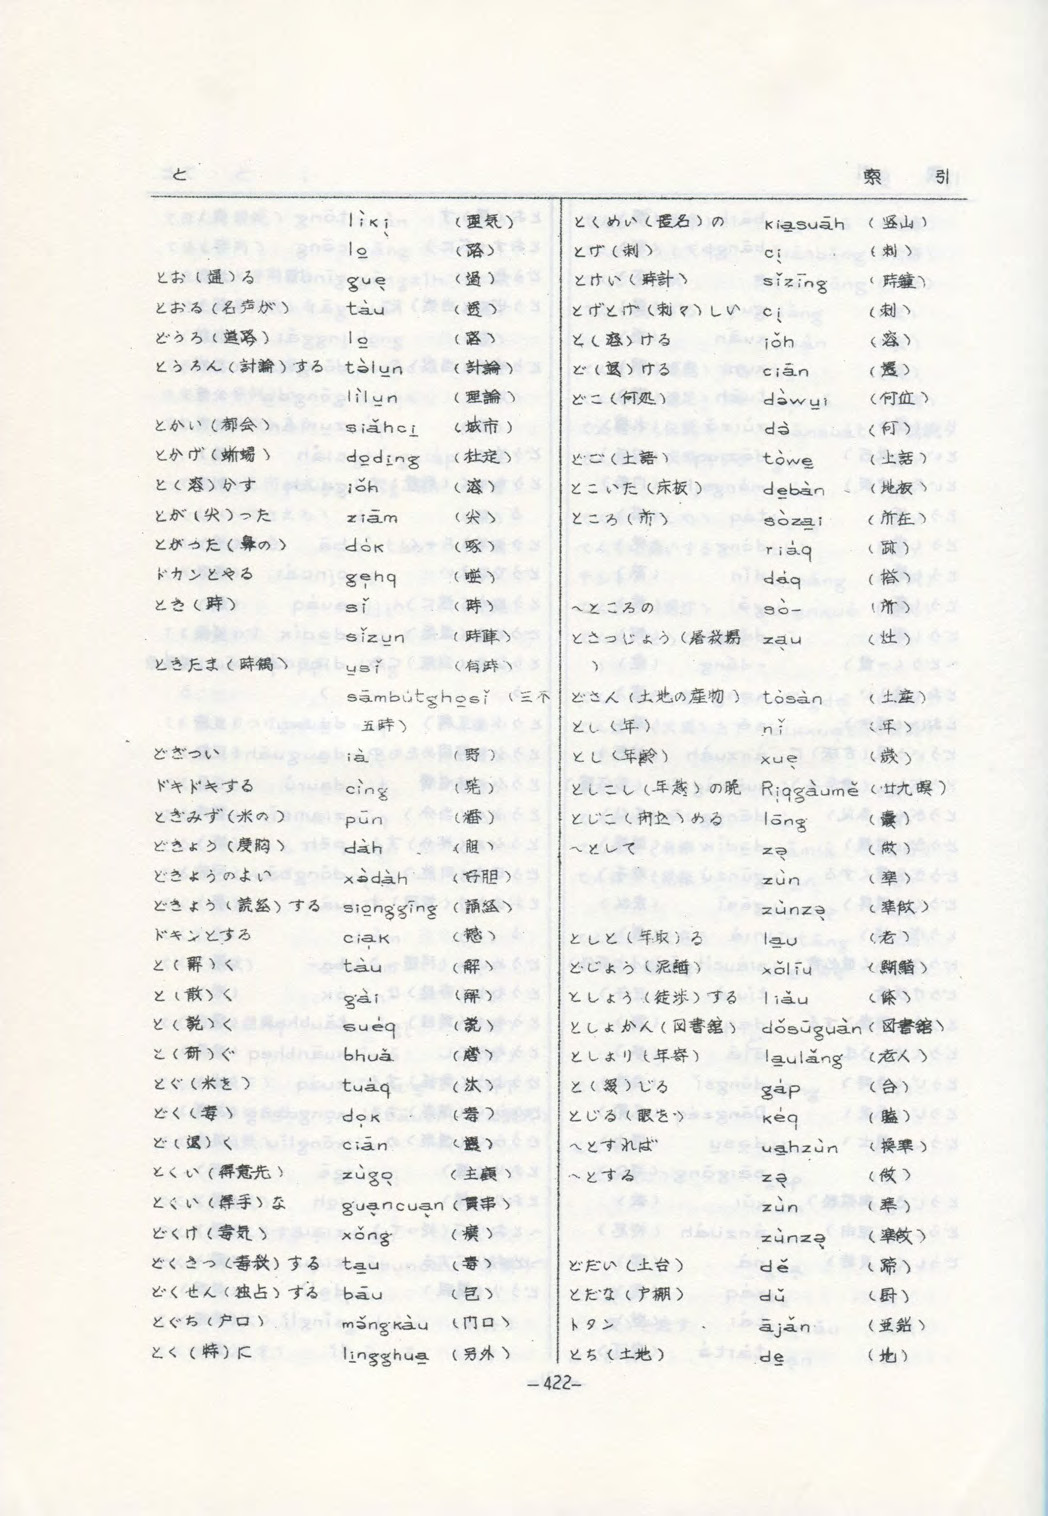 と 索 引
lìkị (理気)
lo̲ (路)
とお(通)る gue̲ (過)
とおる(名声が) tàu (透)
どうろ(道路) lo̲ (路)
とうろん(討論)する tə̀lu̲n (討論)
lǐlu̲n (理論)
とかい(都会) siǎhci̲ (城市)
とかげ(蜥蜴) do̲di̲ng (杜定)
と(溶)かす iǒh (溶)
とが(尖)った ziām (尖)
とがった(鼻の) dók (啄)
ドカンとやる gẹhq
とき(時) sǐ (時)
sǐzu̲n (時陣)
ときたま(時偶) u̲sǐ (有時)
sāmbútgho̲sǐ (三不
五時)
どぎつい ià (野)
ドキドキする cìng
ときみず(米の) pūn (潘)
どきょう(度胸) dàh (胆)
どきょうのよい xə̀dàh (好胆)
どきょう(読経)する sio̲nggīng (誦経)
ドキンとする cia̲k
と(解)く tàu (解)
と(散)く gài (解)
と(説)く suéq (説)
と(研)ぐ bhuǎ (磨)
とぐ(米を) tuáq (汰)
どく(毒) dọk (毒)
ど(退)く ciān (遷)
とくい(得意先) zùgo̲ (主顧)
とくい(得手)な gua̲ncua̲n (貫串)
どくけ(毒気) xǒng (癀)
どくさつ(毒殺)する ta̲u (毒)
どくせん(独占)する bāu (包)
とぐち(戸口) mǎngkàu (門口)
とく(特)に li̲ngghua̲ (另外)
とくめい(匿名)の kia̲suāh (竖山)
とげ(刺) cị (刺)
とけい(時計) sǐzīng (時鐘)
とげとげ(刺々)しい cị (刺)
と(溶)ける iǒh (容)
ど(退)ける ciān (遷)
どこ(何処) dàwu̲i (何位)
də̀ (何)
どご(土語) tòwe̲ (土話)
とこいた(床板) de̲bàn (地板
ところ(所) sòza̲i (所在)
riáq (跡)
dáq (搭)
〜ところの sò- (所)
とさつじょう(屠殺場 za̲u (灶)
)
どさん(土地の産物) tòsàn (土産)
とし(年) nǐ (年)
とし(年齢) xuẹ (歳)
としこし(年越)の晩 Ri̲qgàumě (廿九暝)
とじこ(閉込)める lōng
〜として zə̣ (做)
zùn (準)
zùnzə̣ (準做)
としと(年取)る la̲u (老)
どじょう(泥鰌) xǒlīu (鰗鰌)
としょう(徒歩)する liǎu
としょかん(図書館) dǒsūguàn (図書館)
としより(年寄) la̲ulǎng (老人)
と(綴)じる gáp (合)
とじる(眼を) kéq (瞌)
〜とすれば ua̲hzùn (換準)
〜とする zə̣ (做)
zùn (準)
zùnzə̣ (準做)
どだい(土台) dě (蹄)
とだな(戸棚) dǔ (厨)
トタン āján (亜鉛)
とち(土地) de̲ (地)
-422-